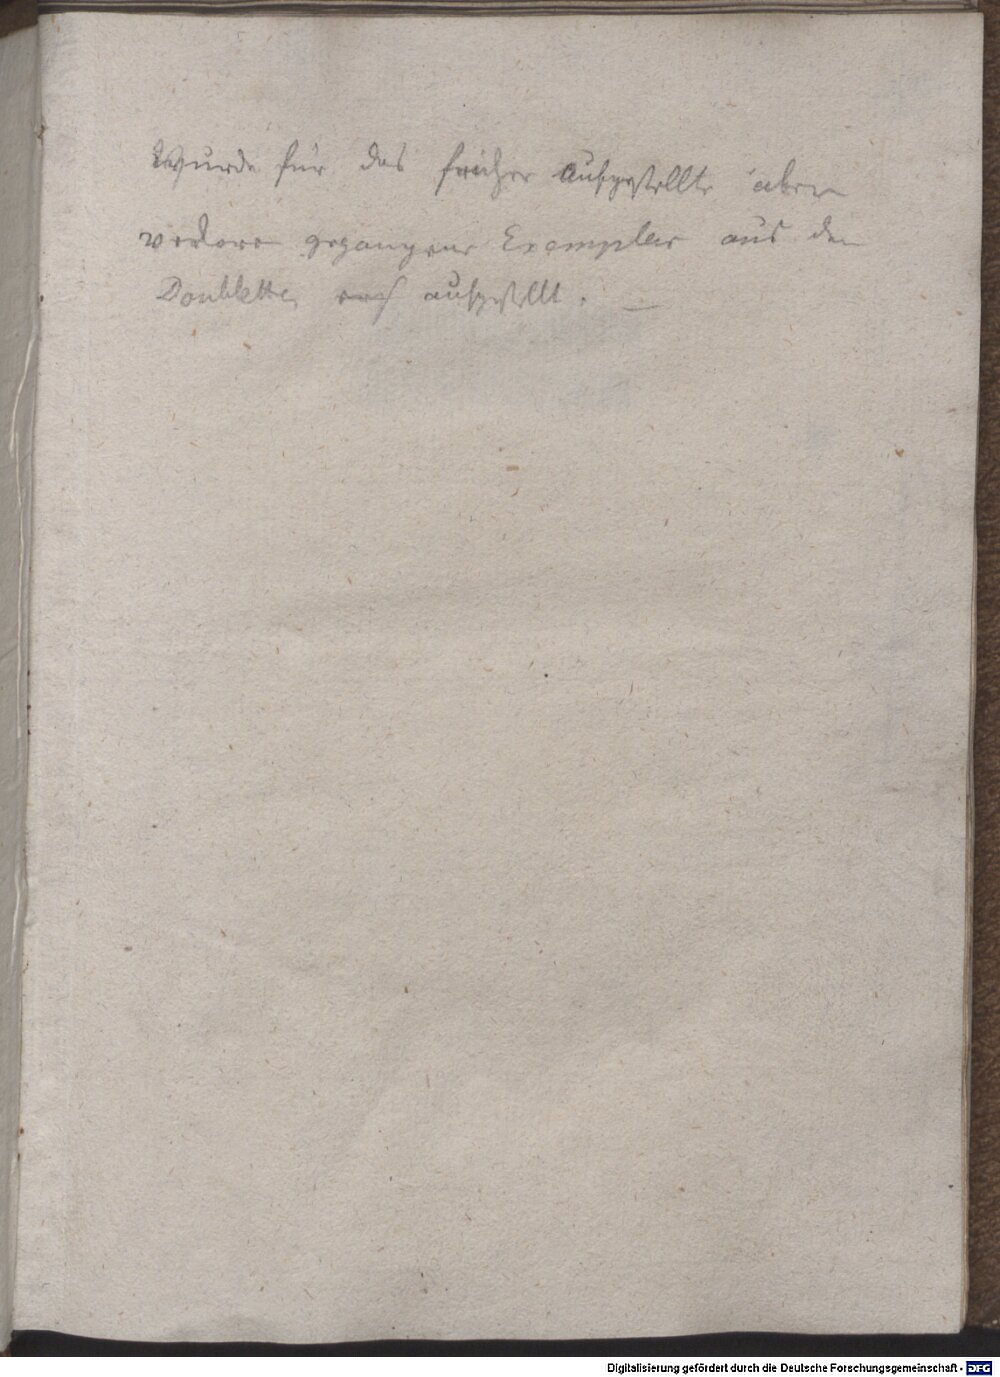 Wurde für das früher aufgestellte aber
verloren gegangene Exemplar aus den
Doubletten aufgestellt.
Digitalisierung gefördert durch die Deutsche Forschungsgemeinschaft - DFG